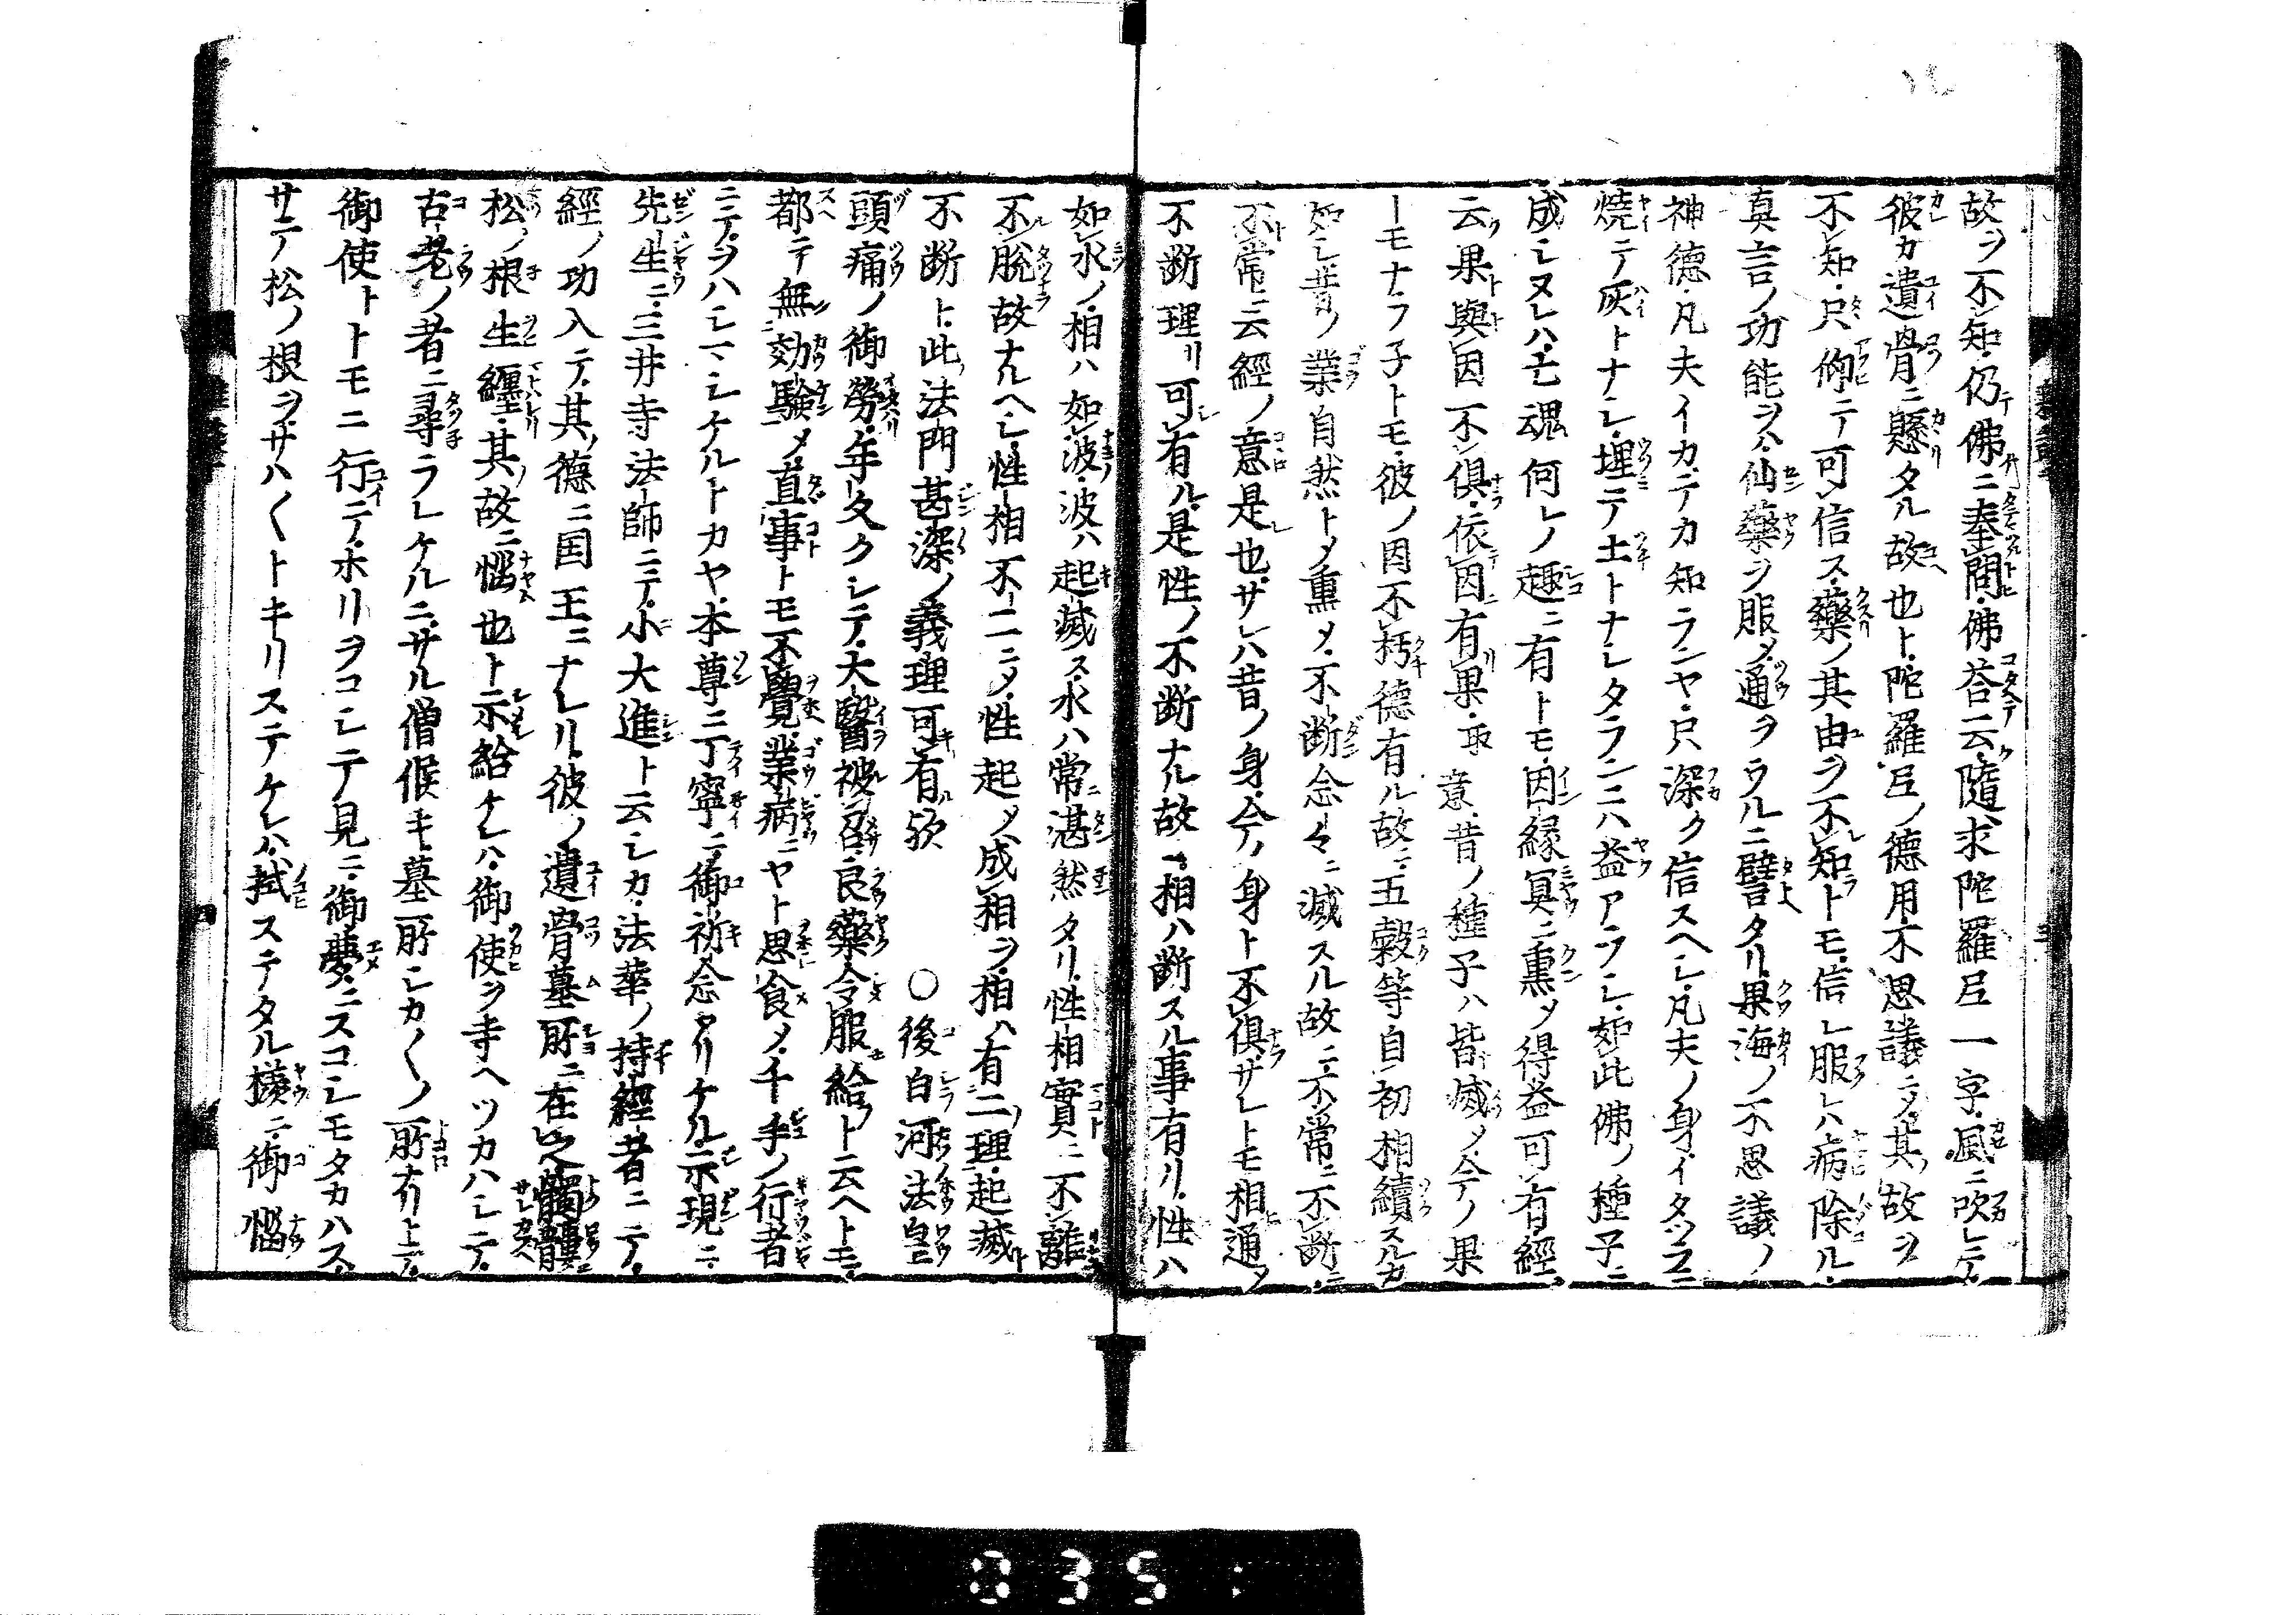 故ヲ不知仍佛ニ奉問佛荅云隨求陀羅尼一字風ニ吹レテ
彼カ遺骨ニ懸タル故也ト陀羅尼ノ德用不思議ニメ其故ヲ
不知只仰テ可信ス藥ノ其由ヲ不知トモ信シ服レハ病除ル
真言ノ功能ヲハ仙藥ヲ服メ通ヲウルニ譬タリ果海ノ不思議ノ
神德凡夫イカテカ知ランヤ只深ク信スヘシ凡夫ノ身イタツラニ
燒テ灰トナシ埋テ土トナシタランニハ益アラシ如此佛ノ種子ニ
成シヌレハ亡魂何レノ趣ニ有トモ因縁冥ニ熏メ得益可有經
云果與因不俱依因有果取意昔ノ種子ハ皆滅メ今ノ果
ーモナラ子トモ彼ノ因不朽德有ル故ニ五穀等自初相續スルカ
如シ昔ノ業自然トメ熏メ不断念々ニ滅スル故ニ不常ニ不断ニ
不常ニ云經ノ意是也サレハ昔ノ身今ノ身ト不俱サレトモ相通メ
不断理リ可有ル是性ノ不断ナル故ニ相ハ断スル事有リ性ハ
如水ノ相ハ如波波ハ起滅ス水ハ常湛然タリ性相實ニ不離
不脱故ナルヘシ性相不二ニメ性起メ成相ヲ相ハ有二理起滅
不断ト此法門甚深ノ義理可有欤　○後白河法皇
頭痛ノ御勞年久クシテ大醫被召良藥令服給ト云ヘトモ
都テ無効驗メ直事トモ不覺業病ニヤト思食メ千手ノ行者
ニテヲハシマシケルトカヤ本尊ニ丁寧ニ御祈念アリケル示現ニ
先生ニ三井寺法師ニテ小大進ト云シカ法華ノ持經者ニテ
經ノ功入テ其德ニ国王ニナレリ彼ノ遺骨墓所ニ在之髑髏
松ノ根生纏其故ニ惱也ト示給ケレハ御使ヲ寺ヘツカハシテ
古老ノ者ニ尋ラレケルニサル僧候キ墓所シカ〱ノ所有リトテ
御使トトモニ行テホリヲコシテ見ニ御夢ニスコシモタカハス
サテ松ノ根ヲサハ〱トキリステケレハ拭ステタル樣ニ御惱